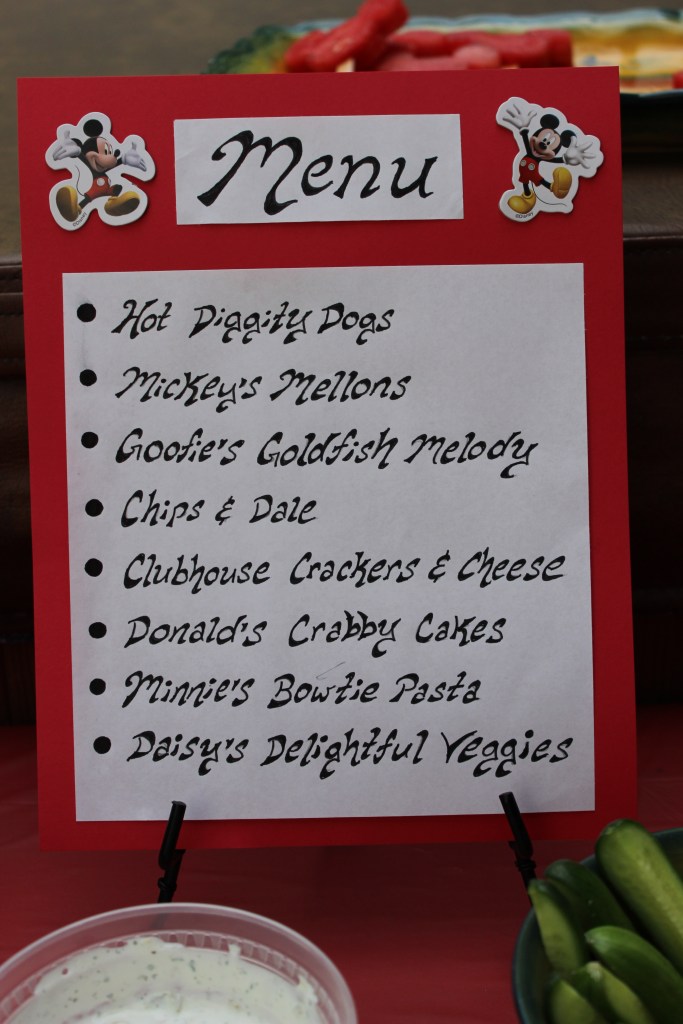 Menu
• Hot Diggity Dogs
• Mickey's Mellons
• Goofie's Goldfish Melody
• Chips & Dale
• Clubhouse Crackers & Cheese
• Donald's Crabby Cakes
• Minnie's Bowtie Pasta
• Daisy's Delightful Veggies